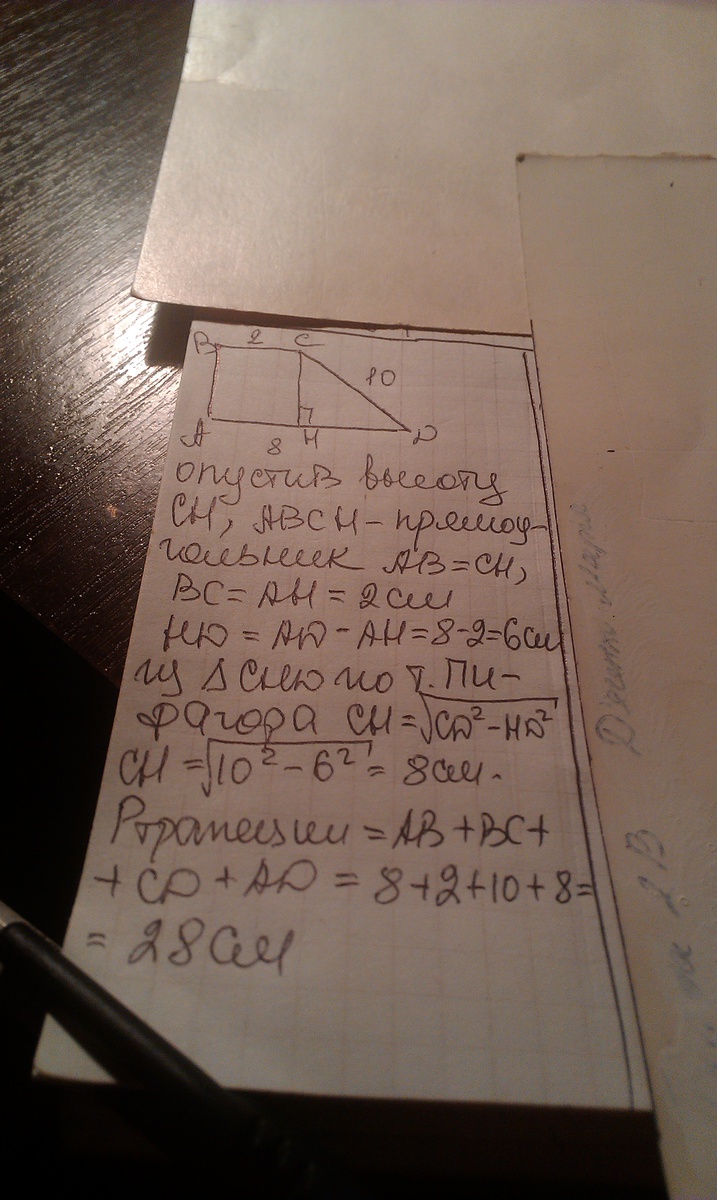 B 2 C
10
A 8 H D
опустив высоту
CH, ABCH - прямоу-
гольник AB = CH,
BC = AH = 2 см
HD = AD - AH = 8-2=6см
из Δ CHD по т. Пи-
фагора CH = √CD² - HD²
CH = √10² - 6² = 8 см.
Pтрапеции = AB + BC +
+ CD + AD = 8+2+10+8=
= 28 см
2 В